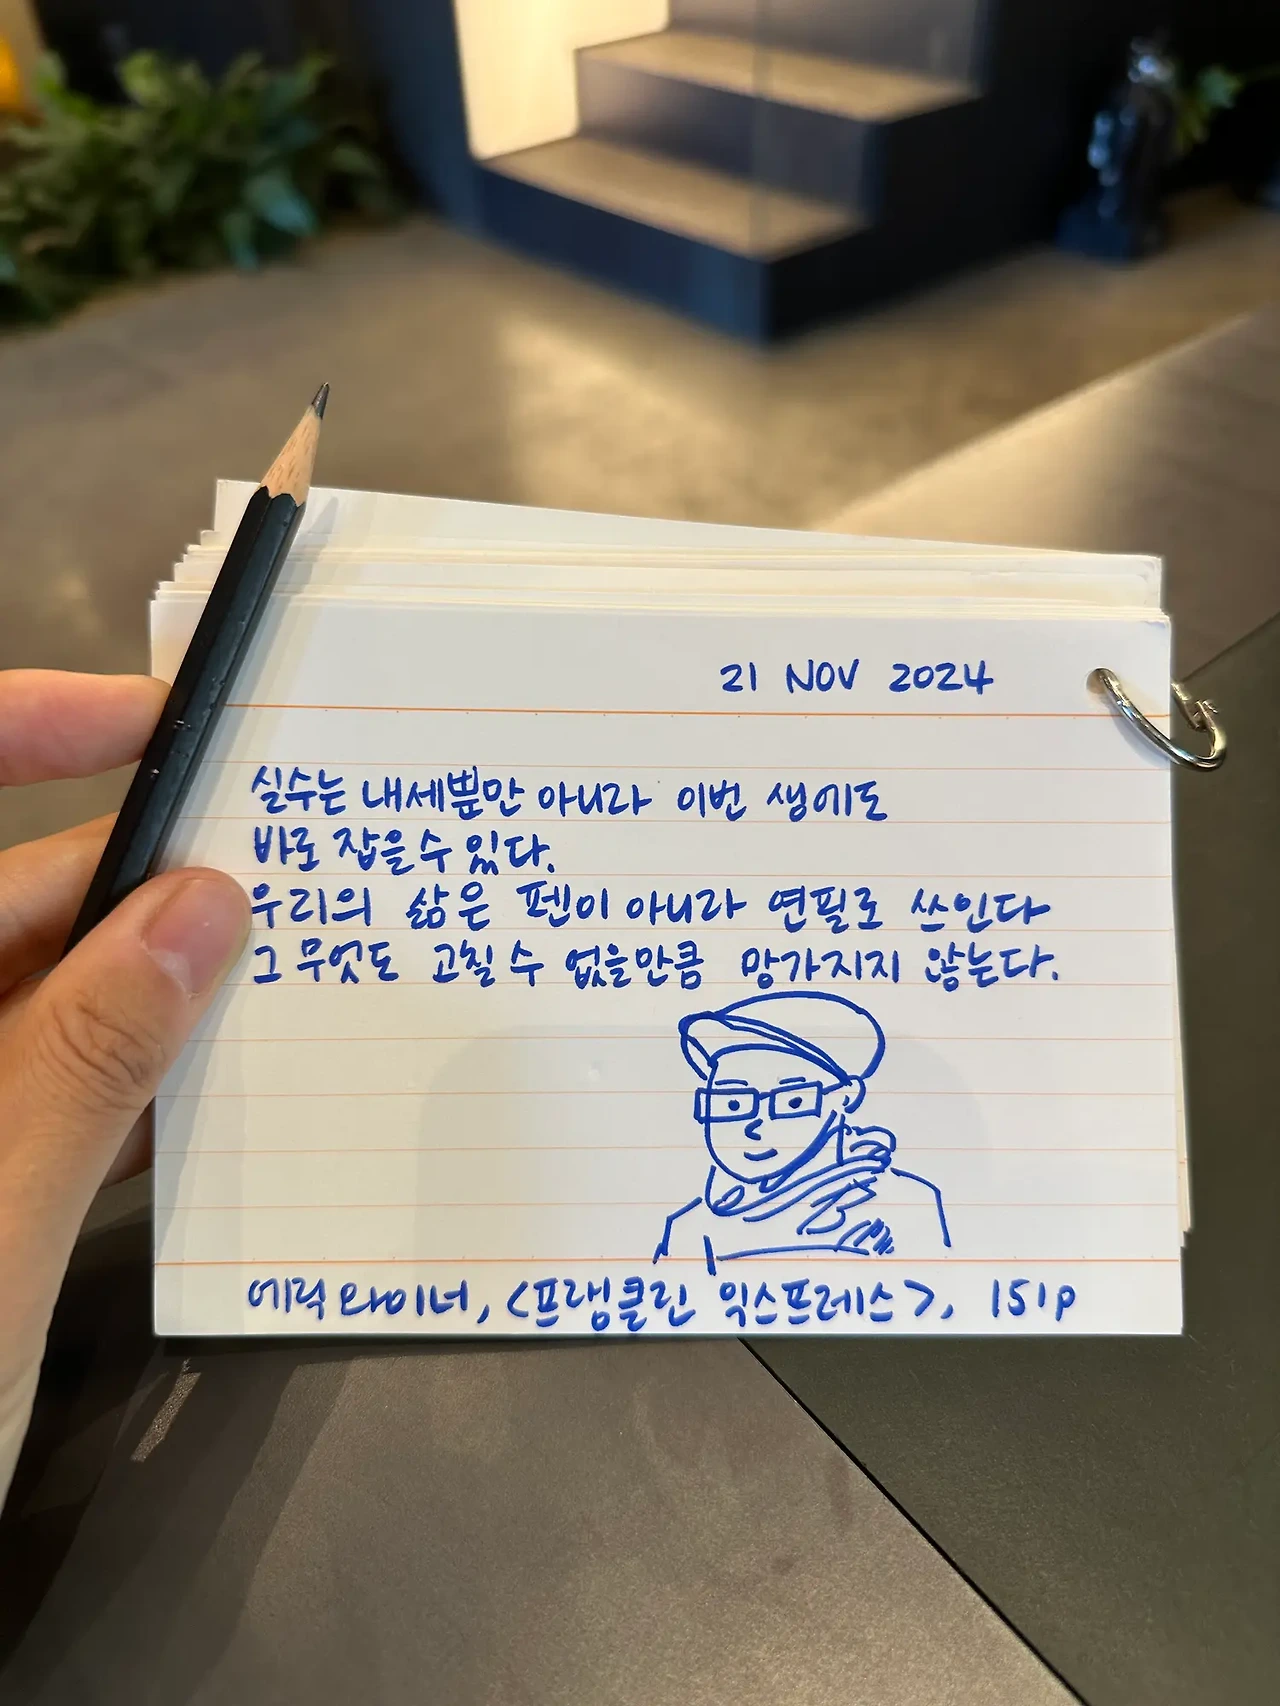 21 NOV 2024
실수는 내세뿐만 아니라 이번 생에도
바로 잡을 수 있다.
우리의 삶은 펜이 아니라 연필로 쓰인다
그 무엇도 고칠 수 없을만큼 망가지지 않는다.
에릭 와이너, <프랭클린 익스프레스>, 151p